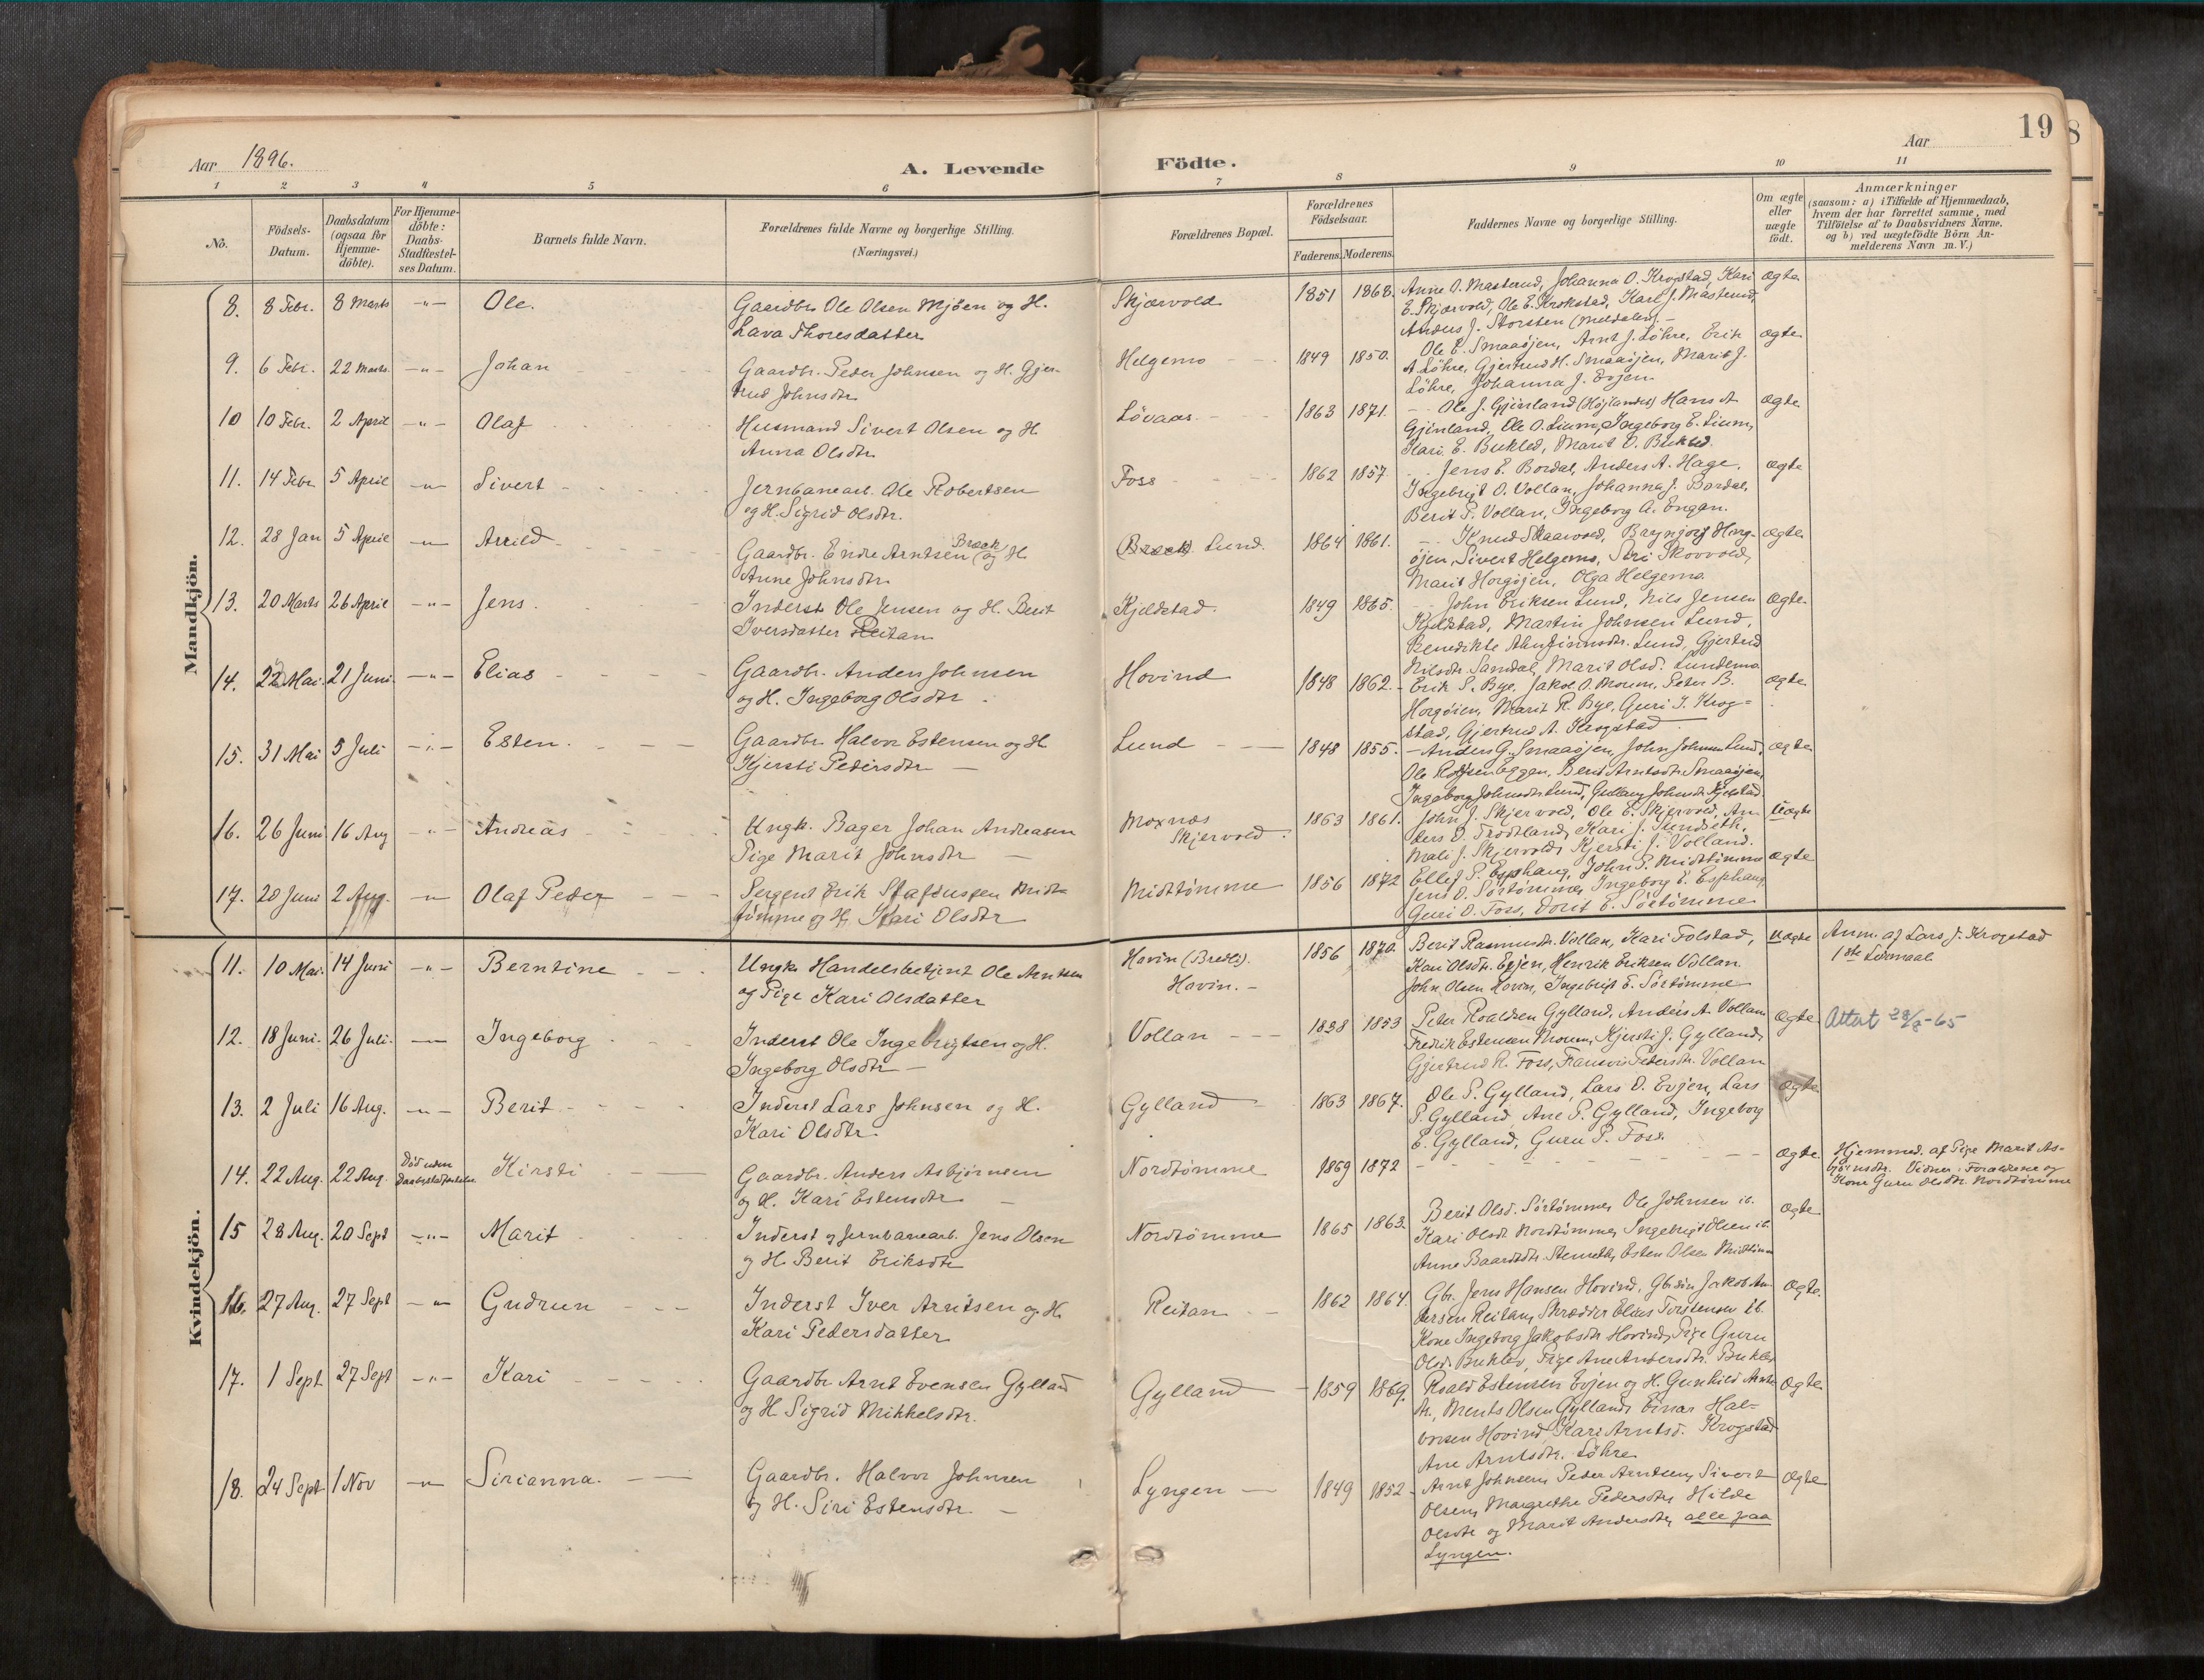 19
Aar 1896.
A. Levende Födte.
Aar
1 2 3 4 5 6 7 8 9 10 11
No.
Födsels-Datum.
Daabsdatum (ogsaa for Hjemme-döbte).
For Hjemme-döbte: Daabs-Stadfæstel-ses Datum.
Barnets fulde Navn.
Forældrenes fulde Navne og borgerlige Stilling.
(Næringsvei.)
Forældrenes Bopæl.
Forældrenes Födselsaar.
Faderens. Moderens.
Faddernes Navne og borgerlige Stilling.
Om ægte eller uægte födt.
Anmærkninger
(saasom: a) i Tilfælde af Hjemmedaab, hvem der har forrettet samme, med Tilföielse af to Daabsvidners Navne. og b) ved uægtefödte Börn An-melderens Navn m. V.)
Mandkjön.
8. 8 Febr. 8 Marts -"- Ole.
Gaardbr. Ole Olsen Mjöen og H.
Lava Thoresdatter
Skjærvold 1851 1868.
Anne O. Mastund, Johanna O. Krogstad, Kari
E. Skjærvold, Ole E. Krokstad, Karl J. Mastund,
Anders J. Storsten (Meldalen). -
ægte
9. 6 Febr. 22 Marts -"- Johan
Gaardbr. Peder Johnsen og H. Gjer-
trud Johnsdtr.
Helgemo 1849 1850.
Ole E. Smaaøjen, Arnt J. Løhre, Erik
A. Løhre, Gjertrud H. Smaaøjen, Marit J.
Løhre, Johanna J. Evjen
ægte
10 10 Febr. 2 April -"- Olaf
Husmand Sivert Olsen og H.
Anna Olsdtr.
Løvaas 1863 1871.
Ole J. Gjinland (Højlandet) Hans A
Gjinland, Ole O. Lium, Ingeborg E. Lium,
Kari E. Bukled, Marit O. Bukled.
ægte
11. 14 Febr. 5 April -"- Sivert
Jernbanearb. Ole Robertsen
og H. Sigrid Olsdtr.
Foss 1862 1857
Jens E. Bordal, Anders A. Hage,
Ingebrigt O. Vollan, Johanna J. Bordal,
Berit P. Vollan, Ingeborg A. Engan.
ægte
12. 28 Jan 5 April -"- Arild
Gaardbr. Endre Arntsen Bræck og H.
Anne Johnsdtr.
(Bræck) Lund. 1864 1861.
Knud Skaarvold, Brynjorf Horg-
øjen, Sivert Helgemo, Siri Skovvold,
Marit Horgøjen, Olga Helgemo
ægte
13. 20 Marts 26 April -"- Jens.
Inderst Ole Jensen og H. Berit
Iversdatter Reitan
Kjeldstad. 1849 1865.
John Eriksen Lund, Nils Jensen
Kjeldstad, Martin Johnsen Lund,
Benedikte Lund, Gjertrud
Nilsdtr. Samdal, Marit Olsd. Lundemo
ægte
14. 22 Mai. 21 Juni -"- Elias
Gaardbr. Anders Johnsen
og H. Ingeborg Olsdtr.
Hovind 1848 1862.
Erik S. Bye, Jakob O. Moum, Peter B.
Horgøien, Marit R. Bye, Guri J. Krog=
stad, Gjertrud A. Krogstad
ægte
15. 31 Mai 5 Juli -"- Esten.
Gaardbr. Halvor Estensen og H.
Kjersti Pedersdtr
Lund 1848 1855.
Anders G. Smaaøjen, John Johnsen Lund,
Ole Eggen, Berit Arntsdtr. Smaaøjen,
Ingeborg Johnsdtr. Lund, Gullaug Johnsdtr. Kjelstad
ægte
16. 26 Juni 16 Aug -"- Andreas
Ungk. Bager Johan Andreasen
Pige Marit Johnsdtr
Moxnæs
Skjervold 1863 1861.
John J. Skjervold, Ole E. Skjervold, An-
ders O. Frodtland, Kari J. Sundseth,
Mali J. Skjervold, Kjersti J. Volland.
uægte
17. 20 Juni 2 Aug. -"- Olaf Peder
Sergent Erik Stafdusgen Midt-
tømme og H. Kari Olsdtr
Midttømme 1856 1872
Ellef P. Esphaug, John P. Midttømme
Jens O. Sørtømme, Ingeborg E. Esphaug,
Guri O. Foss, Dorit E. Sørtømme
ægte
Kvindekjön.
11. 10 Mai. 14 Juni -"- Berntine
Ungk. Handelsbetjent Ole Arntsen
og Pige Kari Olsdatter
Hovin (Bredl).
Hovin. - 1856 1870.
Berit Rasmusdtr. Vollan, Kari Folstad,
Kari Olsdtr. Evjen, Henrik Eriksen Vollan
John Olsen Hovin, Ingebrigt E. Sørtømme
uægte
Anm. af Lars J. Krogstad
1ste Leiermaal.
12. 18 Juni. 26 Juli. -"- Ingeborg
Inderst Ole Ingebrigtsen og H.
Ingeborg Olsdtr
Vollan 1838 1853
Peter Roaldsen Gylland, Anders A. Vollan
Fredrik Estensen Moum, Kjersti J. Gylland,
Gjertrud R. Foss, Pedersdtr. Vollan
ægte
Attat 28/8-65
13. 2 Juli 16 Aug. -"- Berit
Inderst Lars Johnsen og H.
Kari Olsdtr.
Gylland 1863 1867.
Ole P. Gylland, Lars O. Evjen, Lars
P. Gylland, Ane P. Gylland, Ingeborg
E. Gylland, Guru P. Foss
ægte
14. 22 Aug. 22 Aug. Död uden Daabsstadfæstelse Kirsti
Gaardbr. Anders Asbjørnsen
og H. Kari Estensdtr.
Nordtømme 1869 1872
ægte
Hjemmed. af Pige Marit As-
bjørnsdtr. Vidner: Forældrene og
Kone Guru Olsdtr. Nordtømme
15 28 Aug. 20 Sept -"- Marit
Inderst og Jernbanearb. Jens Olsen
og H. Berit Eriksdtr
Nordtømme 1865 1863.
Berit Olsd. Sørtømme, Ole Johnsen ib.
Kari Olsdtr. Nordtømme, Ingebrigt Olsen ib.
Anne Baardsdtr. Esten Olsen Midttømme
ægte.
16. 27 Aug. 27 Sept -"- Gudrun
Inderst Iver Arntsen og H.
Kari Pedersdatter
Reitan 1862 1864.
Gbr. Jens Hansen Hovind, Gbrsøn Jakob An-
dersen Reitan, Skrædder Elias Torstensen ib.
Kone Ingeborg Jakobsdtr Hovind, Pige Guru
Olsd. Buklev, Pige Ane Andersdtr. Buklev
ægte.
17. 1 Sept 27 Sept -"- Kari
Gaardbr. Arnt Evensen Gylland
og H. Sigrid Mikkelsdtr.
Gylland 1859 1869.
Roald Estensen Evjen og H. Gunhild Arnts-
dtr., Ments Olsen Gylland, Einar Hal-
vorsen Hovind, Kari Arntsd. Krogstad
Ane Arntsdtr. Løhre
ægte
18. 24 Sept 1 Nov -"- Sirianna.
Gaardbr. Halvor Johnsen
og H. Siri Estensdtr.
Lyngen 1849 1852
Arnt Johnsen, Peder Arntsen, Sivert
Olsen, Margrethe Pedersdtr, Hilde
Olsdtr og Marit Andersdtr, alle paa
Lyngen.
ægte